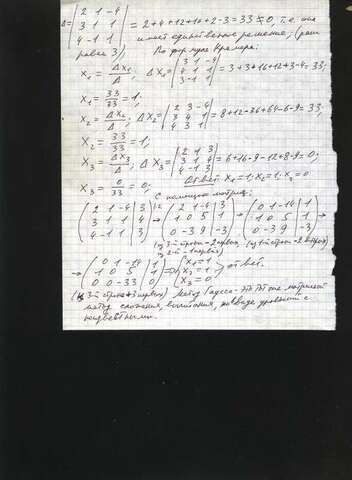 Δ = |2 1 -4; 3 1 1; 4 -1 1| = 2+4+12+16+2-3=33≠0, т.е. она
имеет единственное решение, (ранг
равен 3) По формуле Крамера:
X₁ = Δx₁/Δ, Δx₁ = |3 1 -4; 4 1 1; 3 -1 1| = 3+3+16+12+3-4=33;
X₁ = 33/33 = 1;
X₂ = Δx₂/Δ; Δx₂ = |2 3 -4; 3 4 1; 4 3 1| = 8+12-36+64-6-9=33;
X₂ = 33/33 = 1;
X₃ = Δx₃/Δ; Δx₃ = |2 1 3; 3 1 4; 4 -1 3| = 6+16-9-12+8-9=0;
X₃ = 0/33 = 0; Ответ: X₁=1; X₂=1; X₃=0
С помощью матриц:
(2 1 -4 | 3; 3 1 1 | 4; 4 -1 1 | 3) ~ (2 1 -4 | 3; 1 0 5 | 1; 0 -3 9 | -3) → (0 1 -14 | 1; 1 0 5 | 1; 0 -3 9 | -3) →
(из 3-й строки - 2 первых, (из 1-й строки - 2 второй)
из 2-й - 1 первая)
→ (0 1 -14 | 1; 1 0 5 | 1; 0 0 -33 | 0) ⇒ {X₁=1; X₂=1; X₃=0} ответ.
(к 3-й строке + 3 первых) Метод Гаусса -
метод сложения, вычитания, в виде уравнений с
неизвестными.